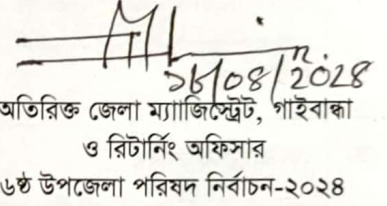 ১৮/০৪/২০২৪
অতিরিক্ত জেলা ম্যাজিস্ট্রেট, গাইবান্ধা
ও রিটার্নিং অফিসার
৬ষ্ঠ উপজেলা পরিষদ নির্বাচন-২০২৪